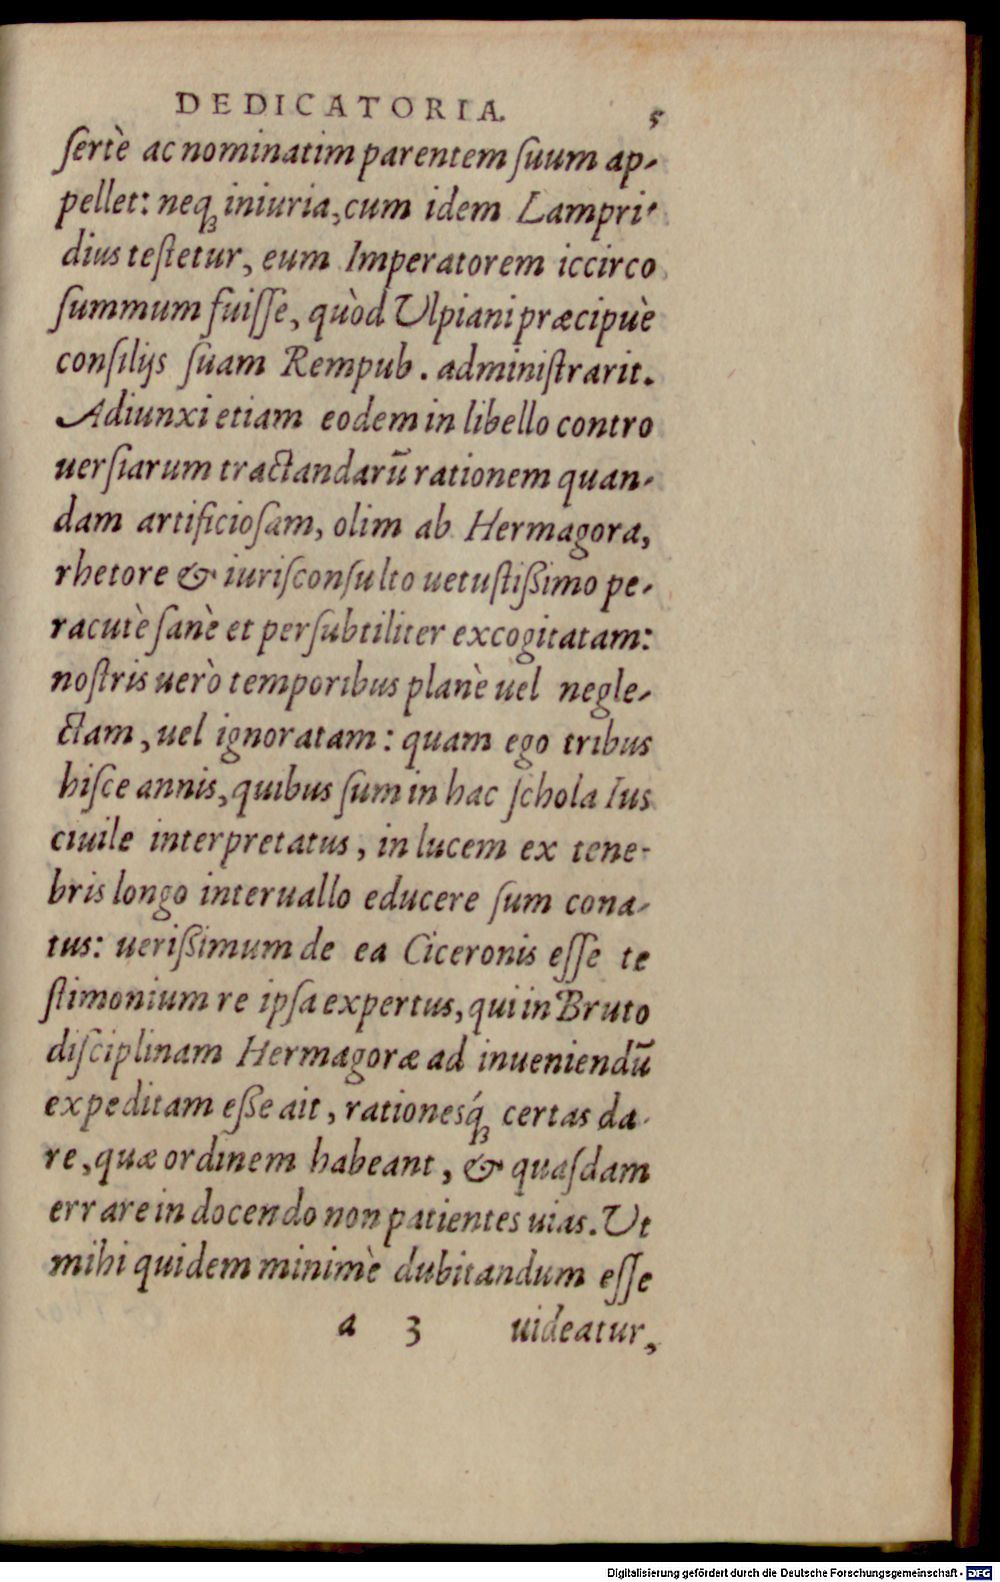 DEDICATORIA. 5
ſertè ac nominatim parentem ſuum ap-
pellet: neq; iniuria, cum idem Lampri-
dius teſtetur, eum Imperatorem iccirco
ſummum fuiſſe, quòd Ulpiani præcipuè
conſilijs ſuam Rempub. adminiſtrarit.
Adiunxi etiam eodem in libello contro
uerſiarum tractandarũ rationem quan-
dam artificioſam, olim ab Hermagora,
rhetore & iuriſconſulto uetuſtißimo pe-
racutè ſanè et perſubtiliter excogitatam:
noſtris uerò temporibus planè uel negle-
ctam, uel ignoratam: quam ego tribus
hiſce annis, quibus ſum in hac ſchola Ius
ciuile interpretatus, in lucem ex tene-
bris longo interuallo educere ſum cona-
tus: uerißimum de ea Ciceronis eſſe te
ſtimonium re ipſa expertus, qui in Bruto
diſciplinam Hermagoræ ad inueniendũ
expeditam eße ait, rationesq́; certas da-
re, quæ ordinem habeant, & quaſdam
errare in docendo non patientes uias. Ut
mihi quidem minimè dubitandum eſſe
a 3 uideatur,
Digitalisierung gefördert durch die Deutsche Forschungsgemeinschaft - DFG